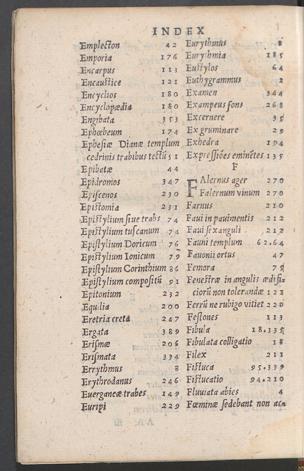 INDEX
Emplecton 42
Emporia 176
Encarpus 113
Encaustice 121
Encyclios 180
Encyclopædia 180
Engibata 353
Ephœbeum 174
Ephesiæ Dianæ templum
cedrinis trabibus tectū 51
Epibatæ 44
Epidromos 347
Episcenos 230
Epistomia 231
Epistylium siue trabs 74
Epistylium tuscanum 74
Epistylium Doricum 76
Epistylium Ionicum 79
Epistylium Corinthium 86
Epistylium compositū 91
Epitonium 232
Equilia 200
Eretria creta 247
Ergata 389
Erismæ 206
Erismata 334
Errythmus 8
Erythrodanus 246
Euerganeæ trabes 149
Euripi 229
Eurythmus 8
Eurythmia 185
Eustylos 64
Euthygrammus 2
Examen 344
Exampeus fons 268
Excernere 35
Exgruminare 29
Exhedra 194
Expressiões eminētes 135
F
FAlernus ager 270
Falernum vinum 270
Farnus 210
Faui in pauimentis 212
Faui sexanguli 212
Fauni templum 62.64
Fauonii ortus 47
Femora 75
Fenestræ in angulis ædifi-
ciorū non tolerandæ 121
Ferrū ne rubigo vitiet 220
Festones 113
Fibulæ 18.135
Fibulata colligatio 18
Filex 211
Fistuca 95.339
Fistucatio 94.210
Fluuiata abies 4
Fœminæ sedebant non ac